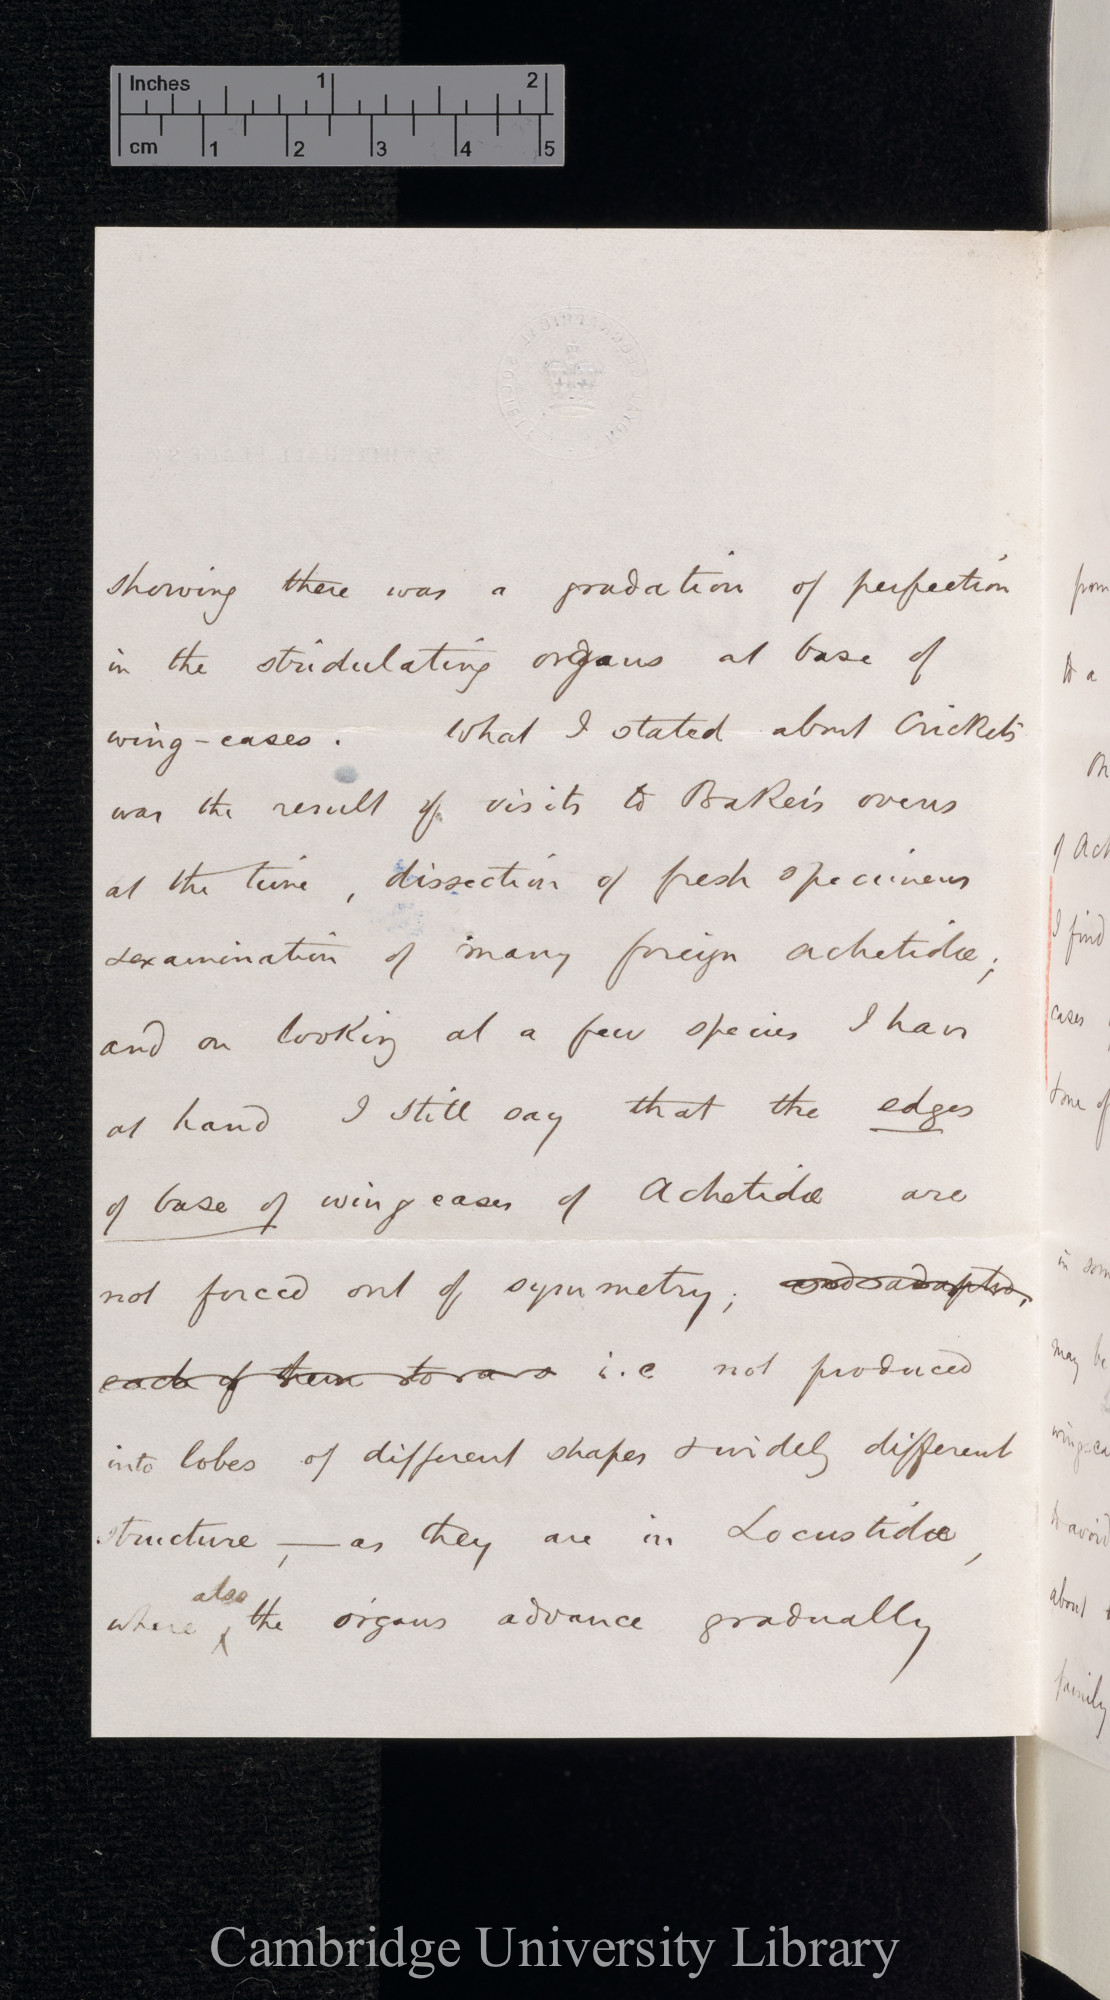 Inches 1 2
cm 1 2 3 4 5
showing there was a gradation of perfection
in the stridulating organs at base of
wing-cases. What I stated about Crickets
was the result of visits to Bakers ovens
at the time, dissection of fresh specimens
& examination of many foreign achetidæ;
and on looking at a few species I have
at hand I still say that the edges
of base of wing cases of Achetidæ are
not forced out of symmetry; and adapted,
each of them to va i.e not produced
into lobes of different shapes & widely different
structure,— as they are in Locustidæ,
also
where the organs advance gradually
from
to a
of Ach
I find
cases
& one of
in som
may be
wing-ca
to avoid
about
family
Cambridge University Library